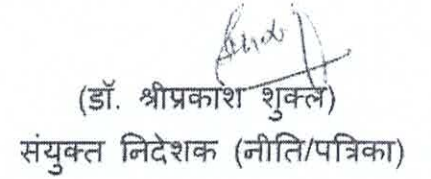 (डॉ. श्रीप्रकाश शुक्ल)
संयुक्त निदेशक (नीति/पत्रिका)